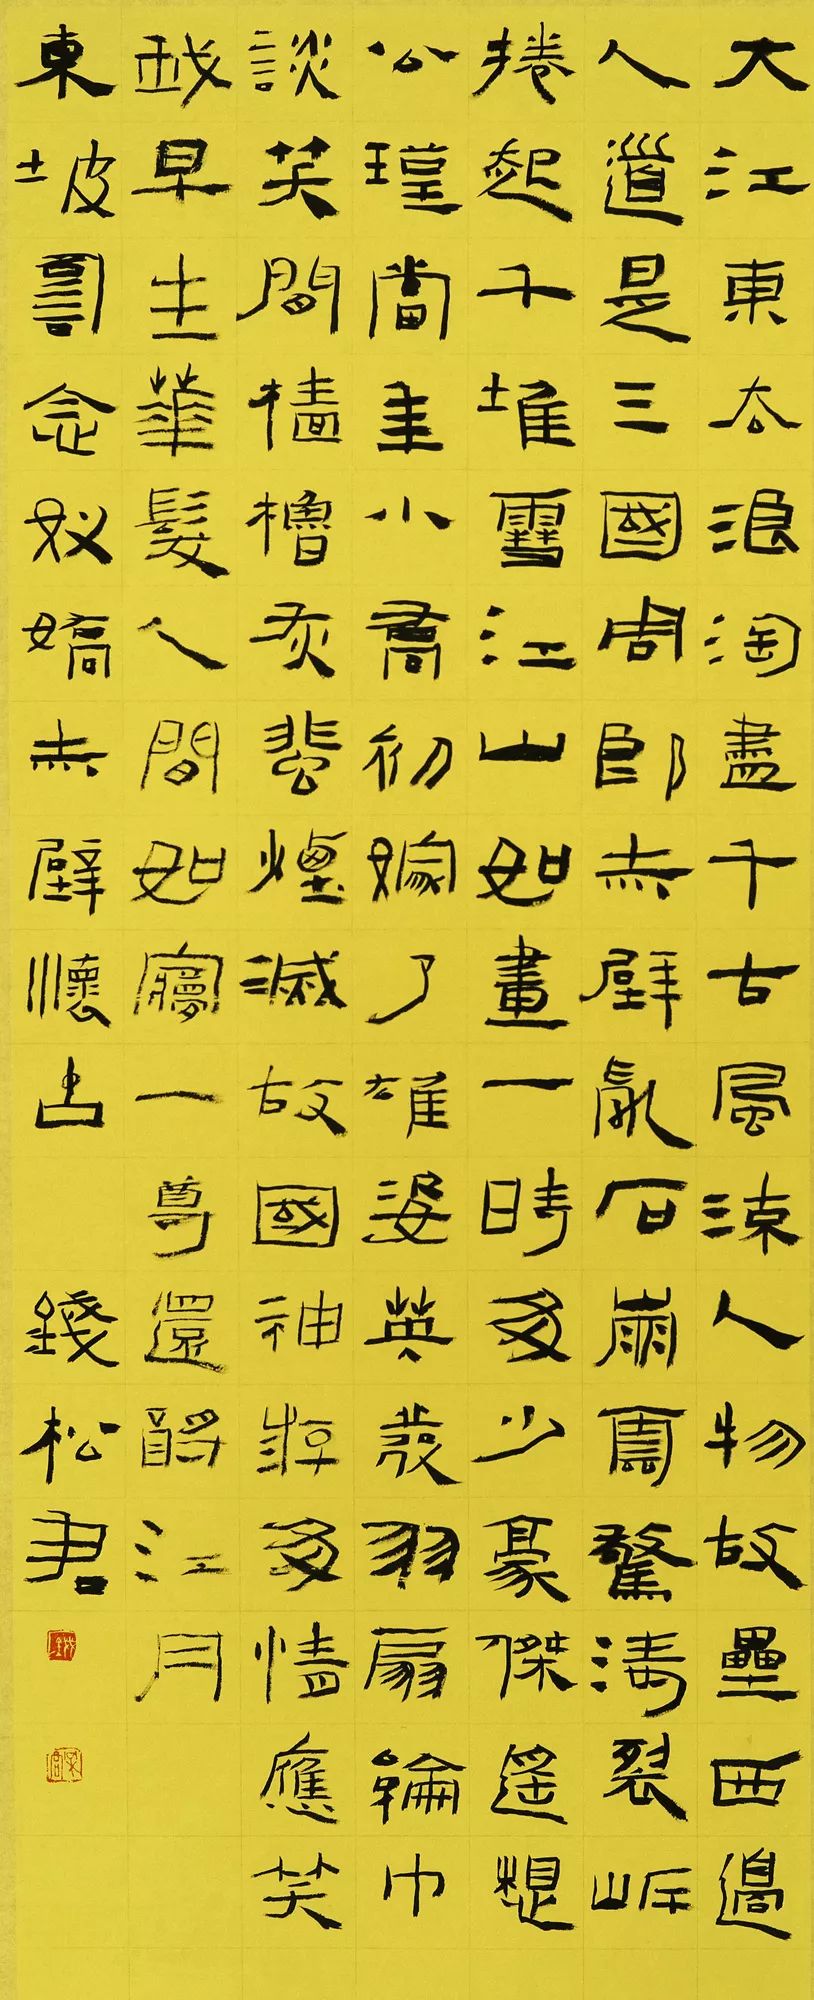 大江東去浪淘盡千古風流人物故壘西邊
人道是三國周郎赤壁亂石崩雲驚濤裂岸
捲起千堆雪江山如畫一時多少豪傑遙想
公瑾當年小喬初嫁了雄姿英發羽扇綸巾
談笑間檣櫓灰蜚煙滅故國神游多情應笑
我早生華髮人間如夢一尊還酹江月
東坡詞念奴嬌赤壁懷古 錢松君